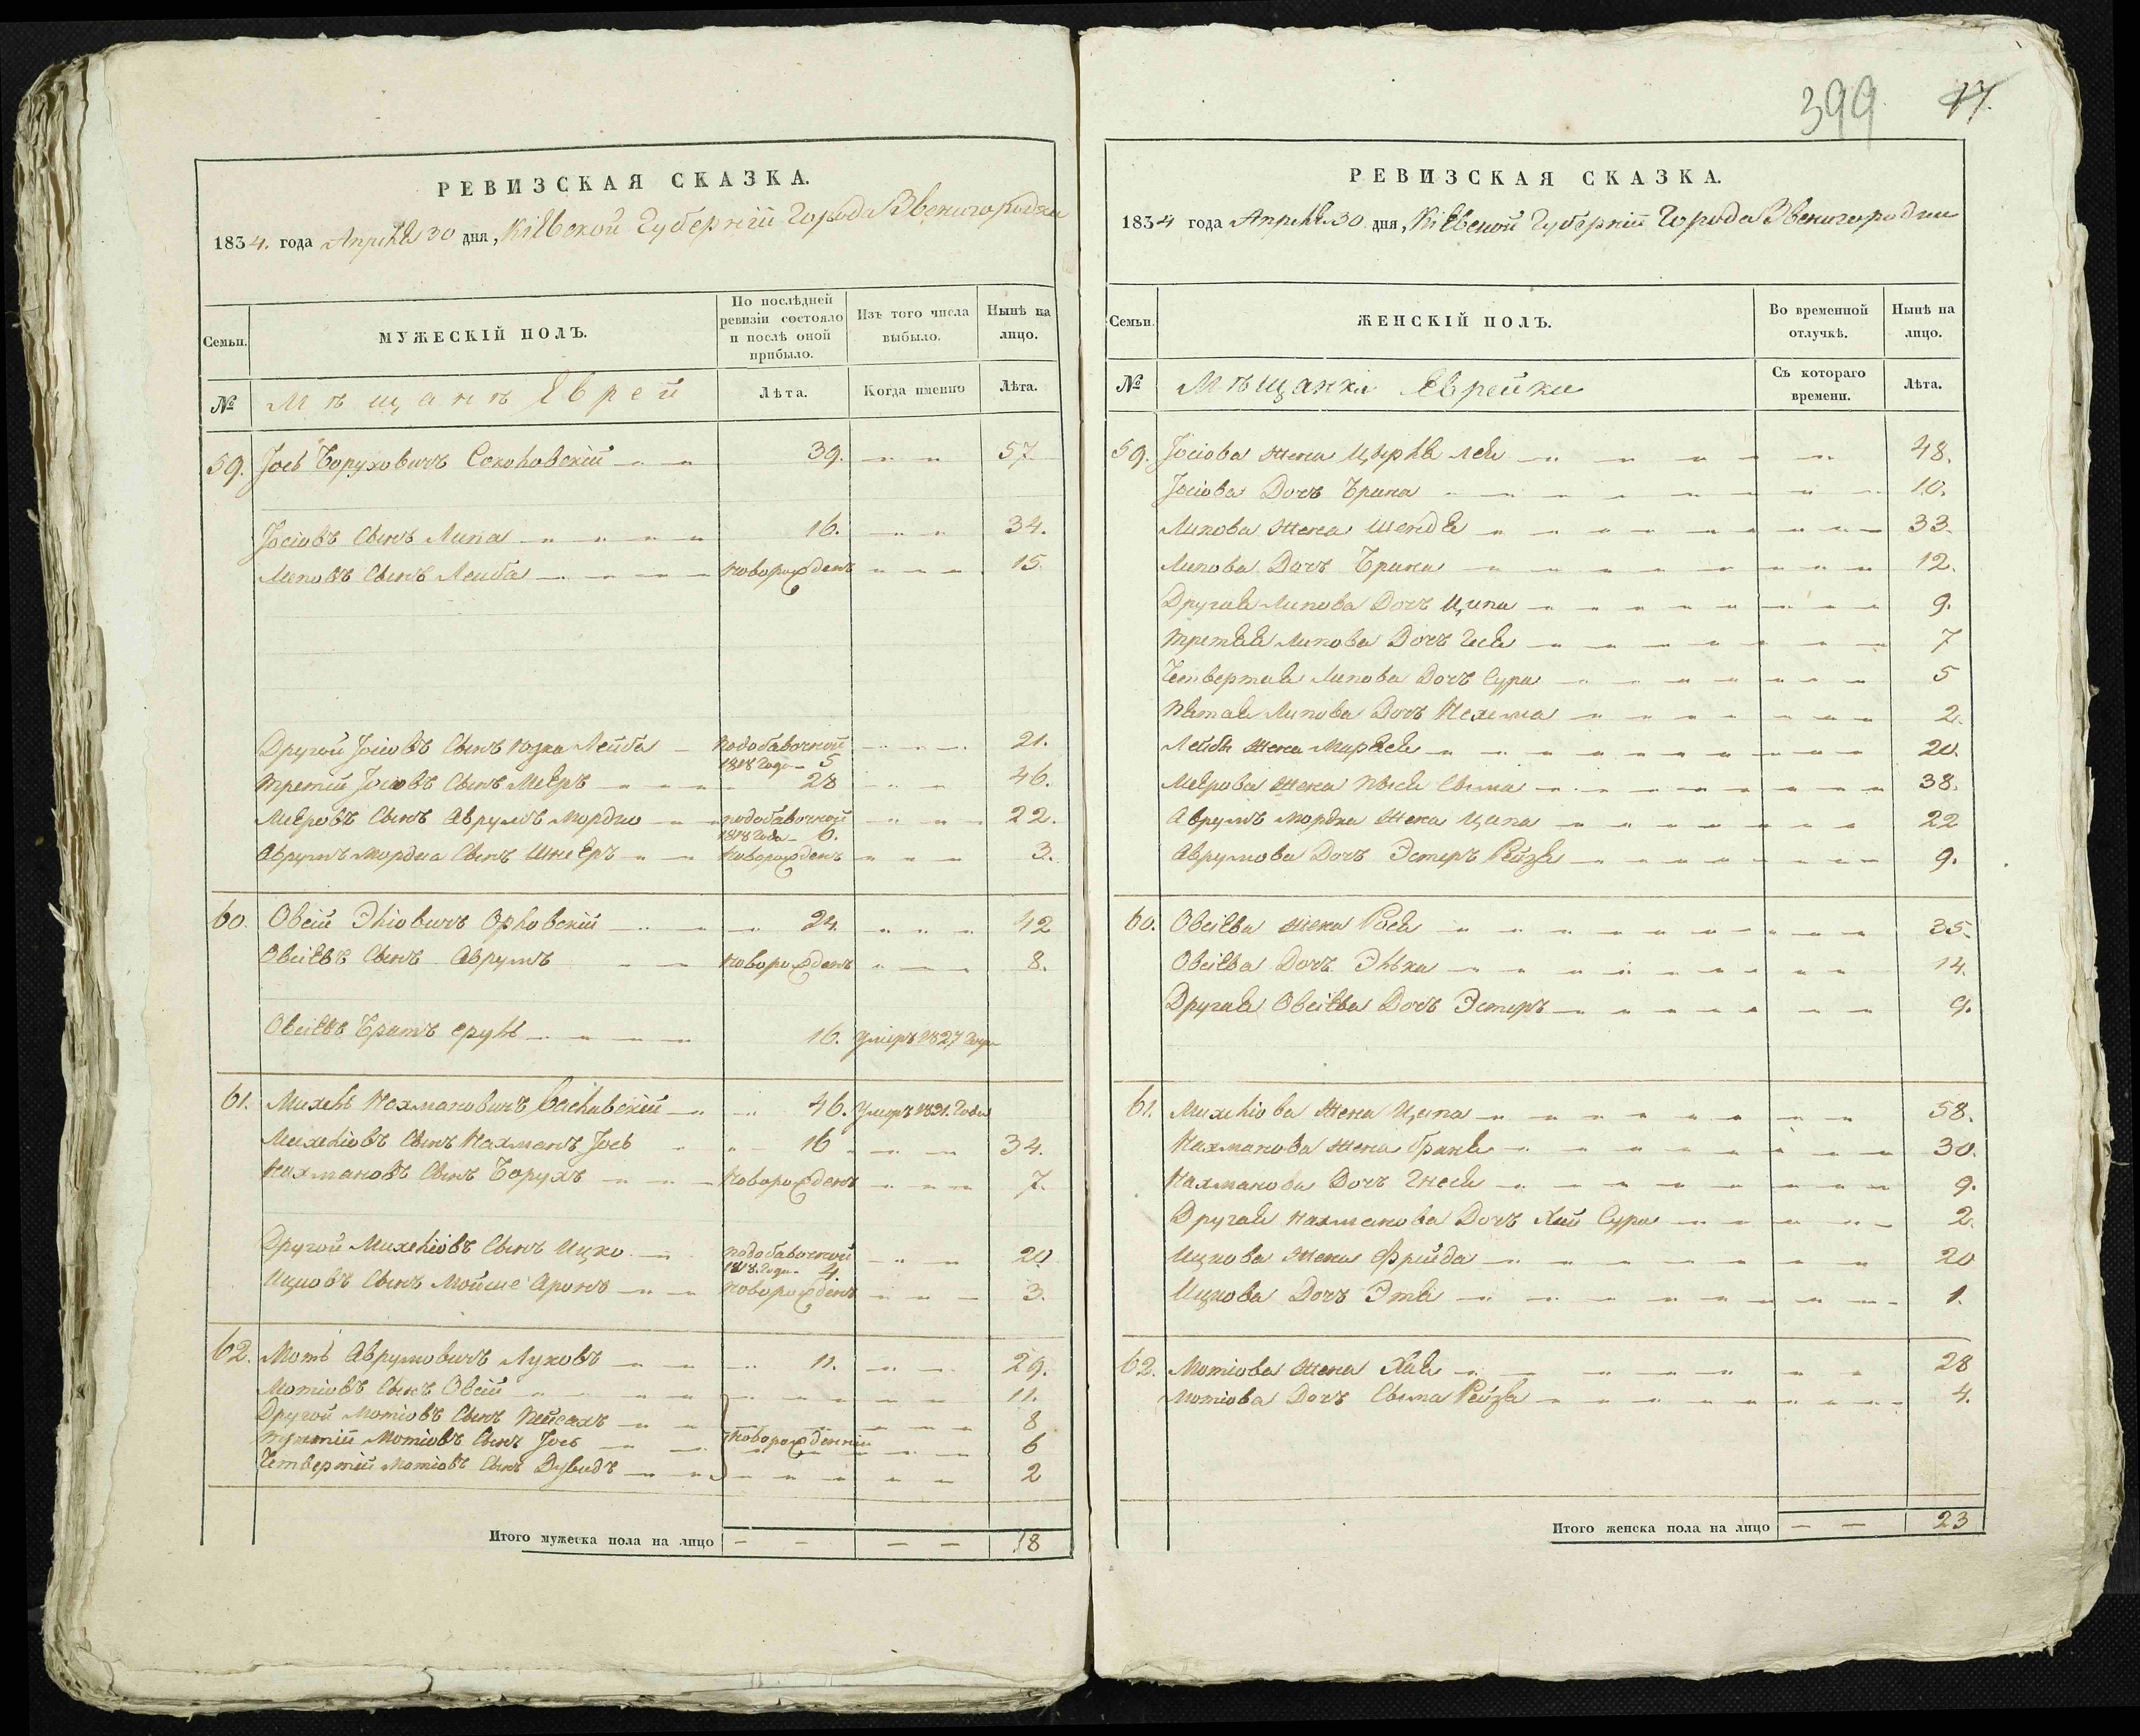 РЕВИЗСКАЯ СКАЗКА.
1834. года Апреля 30 дня, Кіевской Губерніи Города Звенигородки
Семьи. МУЖЕСКІЙ ПОЛЪ. По послѣдней ревизіи состояло и послѣ оной прибыло. Изъ того числа выбыло. Нынѣ на лицо.
№ Мѣщанъ Еврей Лѣта. Когда именно Лѣта.
59. Іось Боруховичъ Соколовскій 39. 57
Іосіовъ Сынъ Липа 16. 34.
Липовъ Сынъ Лейба новорожденъ 15.
Другой Іосіовъ Сынъ Юзка Лейба подобавочной 1818 года 5 21.
третій Іосіовъ Сынъ Меяръ 28 46.
Меяровъ Сынъ Аврумъ Мордко подобавочной 1818 года 6. 22.
Аврумъ Мордка Сынъ Шнеяръ новорожденъ 3.
60. Овсій Эліовичъ Орловскій 24. 42
Овсіевъ Сынъ Аврумъ новорожденъ 8.
Овсіевъ Братъ Сруль 16. умеръ 1827 Года
61. Михель Нахмановичъ 46. умеръ 1831. Года
Михеліовъ Сынъ Нахманъ Іось 16 34.
Нахмановъ Сынъ Борухъ новорожденъ 7.
Другой Михеліовъ Сынъ Ицко подобавочной 1818. Года 4 20
Ицковъ Сынъ Мойше Аронъ новорожденъ 3.
62. Моть Аврумовичъ Луковъ 11. 29.
Мотіовъ Сынъ Овсій 11.
Другой Мотіовъ Сынъ Пейсахъ 8
Третій Мотіовъ Сынъ Іось новорожденніи 6
Четвертій Мотіовъ Сынъ Дувидъ 2
Итого мужеска пола на лицо 18
399 17.
РЕВИЗСКАЯ СКАЗКА.
1834 года Апреля 30. дня, Кіевской Губерніи Города Звенигородки
Семьи. ЖЕНСКІЙ ПОЛЪ. Во временной отлучкѣ. Нынѣ на лицо.
№ Мѣщанки Еврейки Съ котораго времени. Лѣта.
59. Іосіова жена Цирля Лея 48.
Іосіова Дочъ Брина 10.
Липова жена Шендя 33.
Липова Дочъ Брина 12.
Другая Липова Дочъ Ципа 9.
третяя Липова Дочъ Гися 7
Четвертая Липова Дочъ Сура 5
Пятая Липова Дочъ Нехема 2.
Лейби жена Мирьям 20.
Меярова жена Песя Сыма 38.
Аврумъ Мордка жена Ципа 22
Аврумова Дочъ Эстеръ Рейзя 9.
60. Овсіева жена Рася 35.
Овсіева Дочъ Элька 14.
Другая Овсіева Дочъ Эстеръ 9.
61. Михеліова жена Ципа 58.
Нахманова жена Браня 30.
Нахманова Дочъ Гнеся 9.
Другая Нахманова Дочъ Хая Сура 2.
Ицкова жена Фрейда 20
Ицкова Дочъ Этя 1.
62. Мотіова жена Хая 28
Мотіова Дочъ Сыма Рейзя 4.
Итого женска пола на лицо 23